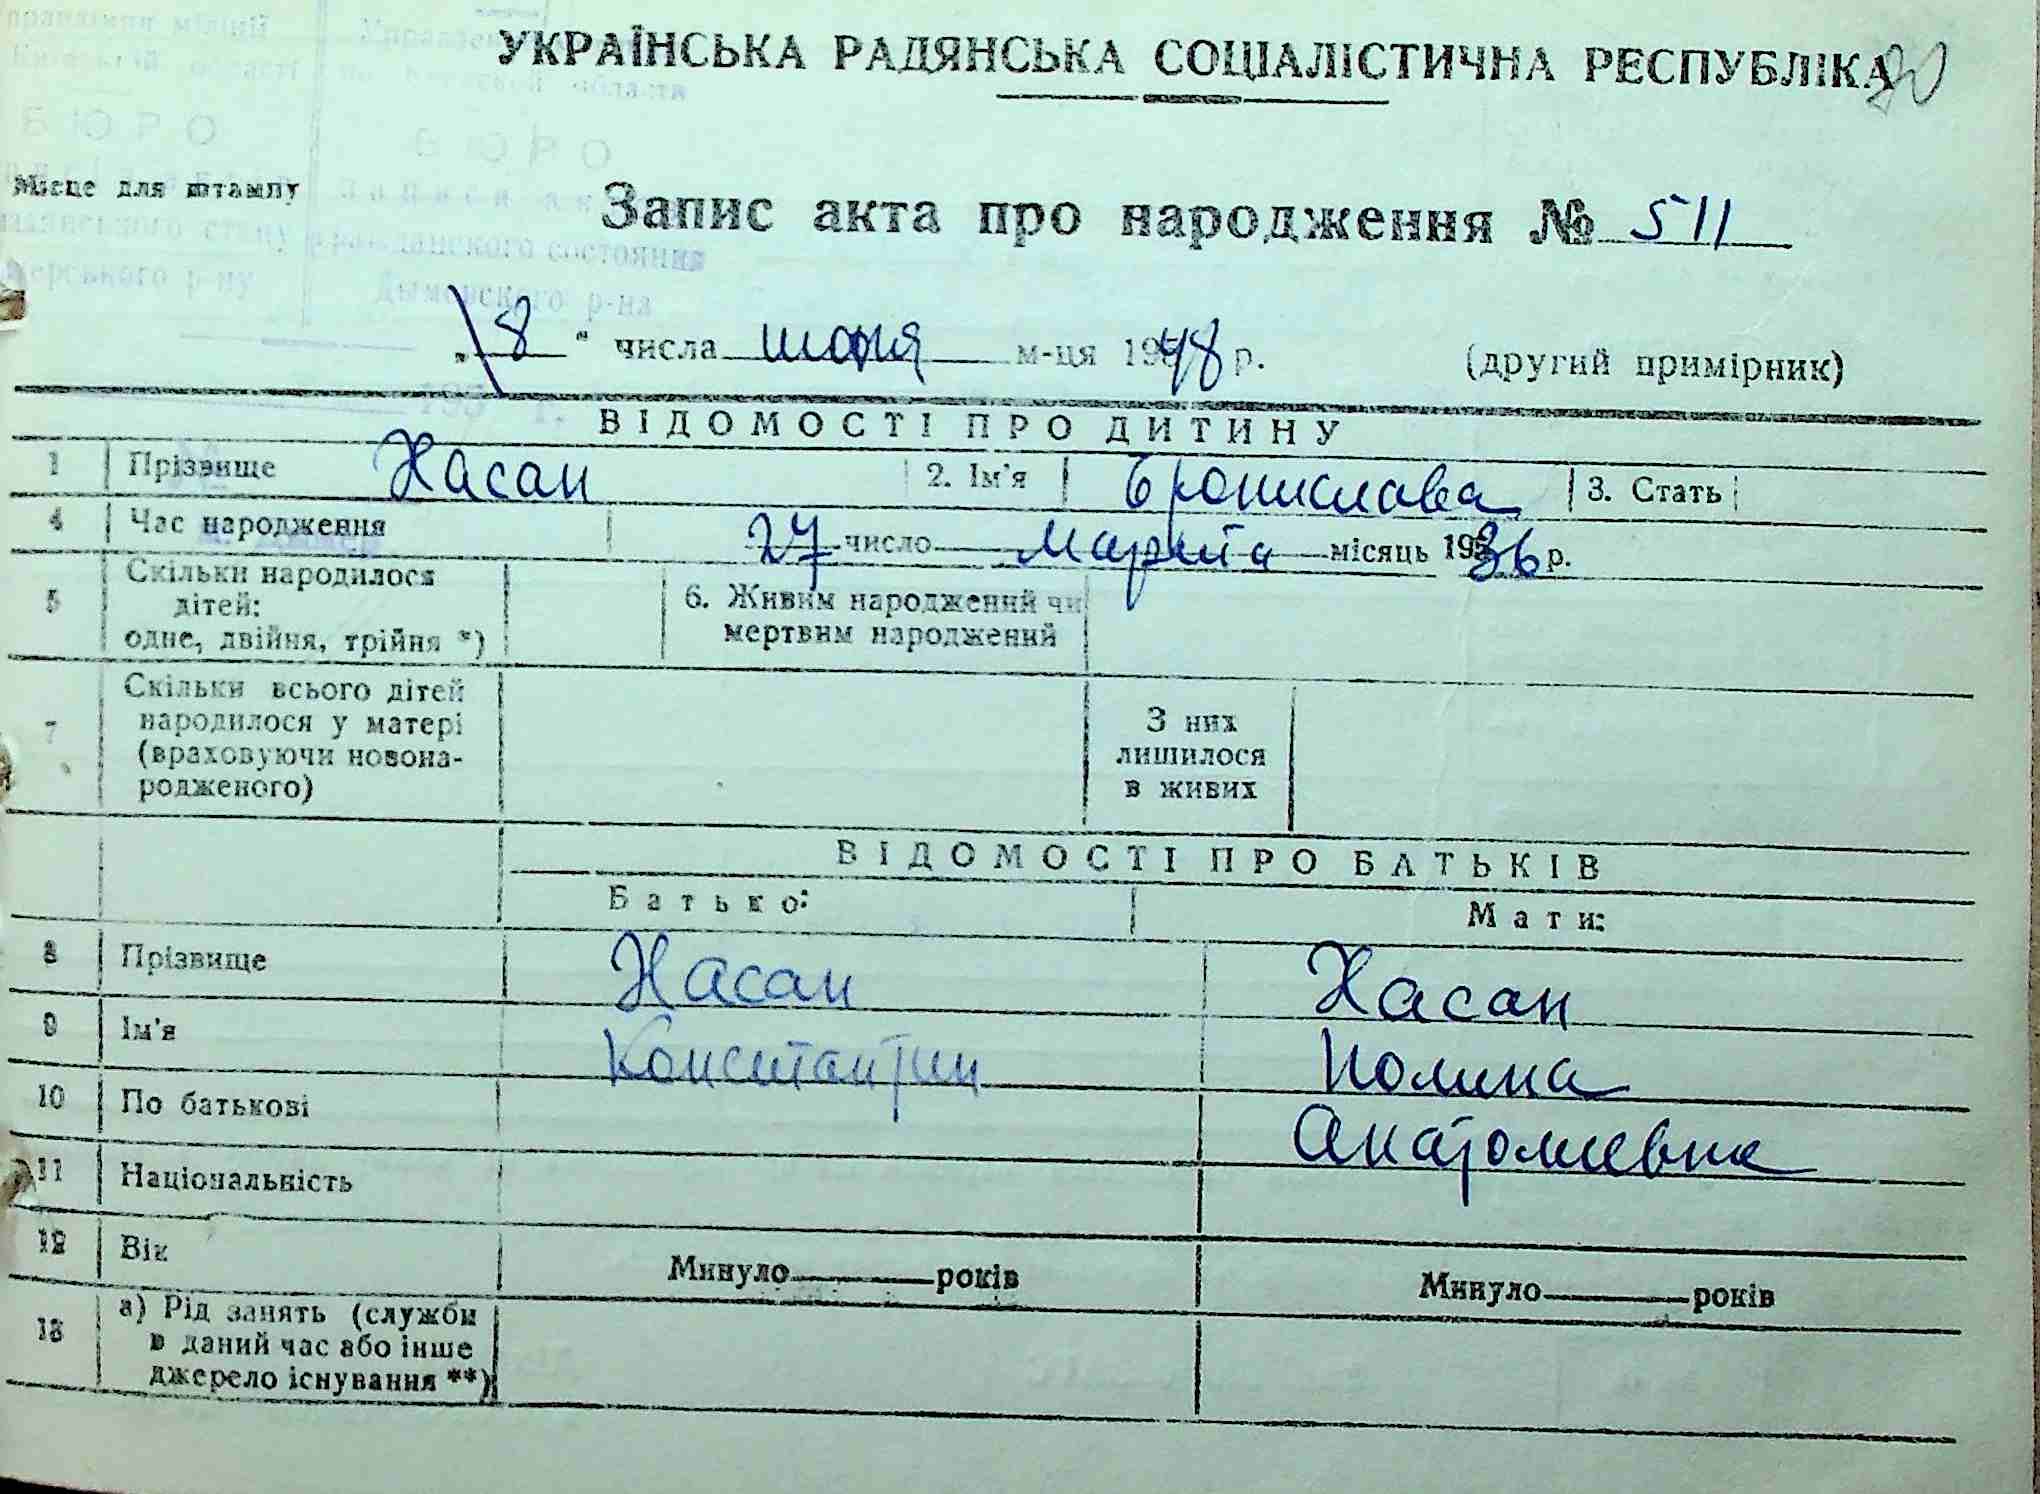 УКРАЇНСЬКА РАДЯНСЬКА СОЦІАЛІСТИЧНА РЕСПУБЛІКА
Місце для штампу
Запис акта про народження № 511
„ 8 " числа июня м-ця 1948 р.
(другий примірник)
ВІДОМОСТІ ПРО ДИТИНУ
1 Прізвище Хасан 2. Ім'я Бронислава 3. Стать
4 Час народження 27 число марта місяць 1936 р.
5 Скільки народилося дітей: одне, двійня, трійня *)
6. Живим народжений чи мертвим народжений
7 Скільки всього дітей народилося у матері (враховуючи новона-родженого)
З них лишилося в живих
ВІДОМОСТІ ПРО БАТЬКІВ
Батько: Мати:
8 Прізвище Хасан Хасан
9 Ім'я Константин Полина
10 По батькові Анатолиевна
11 Національність
12 Вік Минуло років Минуло років
13 а) Рід занять (служби в даний час або інше джерело існування **)